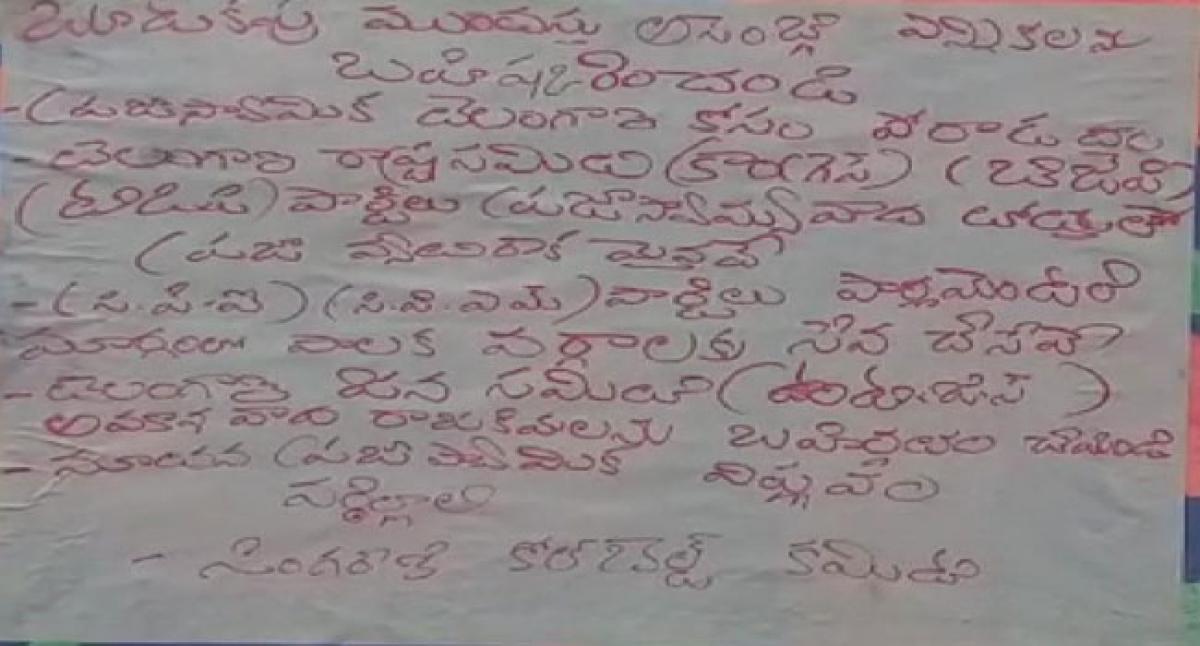 బూటుకపు ముందస్తు అసెంబ్లీ ఎన్నికలను
బహిష్కరించండి
- ప్రజాస్వామిక తెలంగాణ కోసం పోరాడుదాం
- తెలంగాణ రాష్ట్ర సమితి (కాంగ్రెస్) (బిజేపి)
(టిడిపి) పార్టీలు ప్రజాస్వామ్యవాద
ప్రజా వ్యతిరేక మైనవే
- (సి.పి.ఐ) (సి.పి.ఎమ్) పార్టీలు పార్లమెంటరీ
మార్గంలో పాలక వర్గాలకు సేవ చేసేవే
- తెలంగాణ జన సమితి
అవకాశవాద రాజకీయాలను బహిర్గతం చేయండి
- నూతన ప్రజాస్వామిక విప్లవం
వర్ధిల్లాలి
- సింగరేణి కోల్‌బెల్ట్ కమిటి